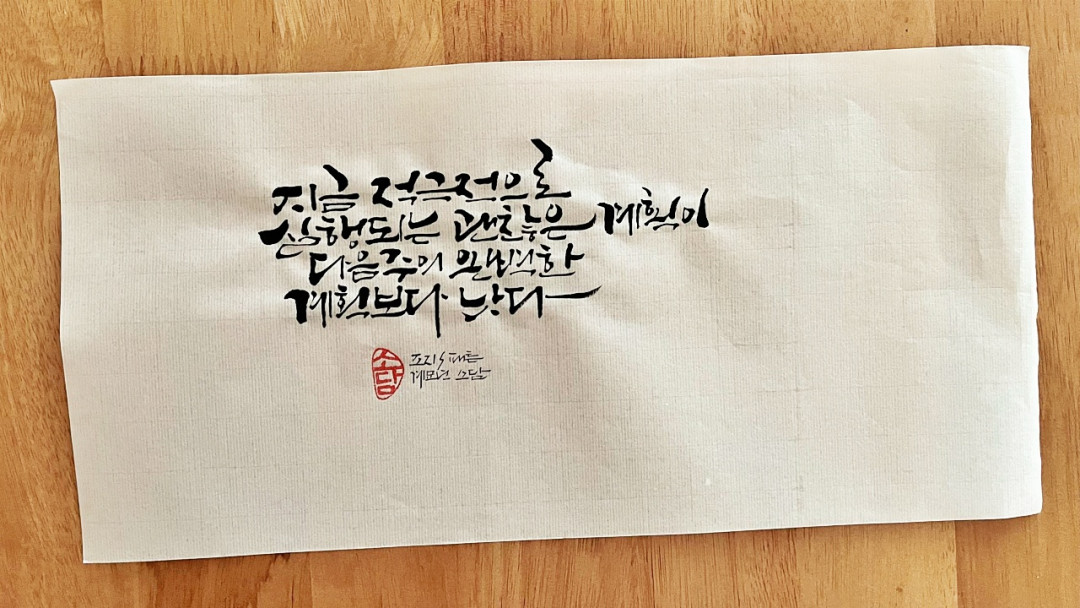 지금 적극적으로
실행되는 괜찮은 계획이
다음주의 완벽한
계획보다 낫다
소담
조지 S 패튼
계묘년 소담